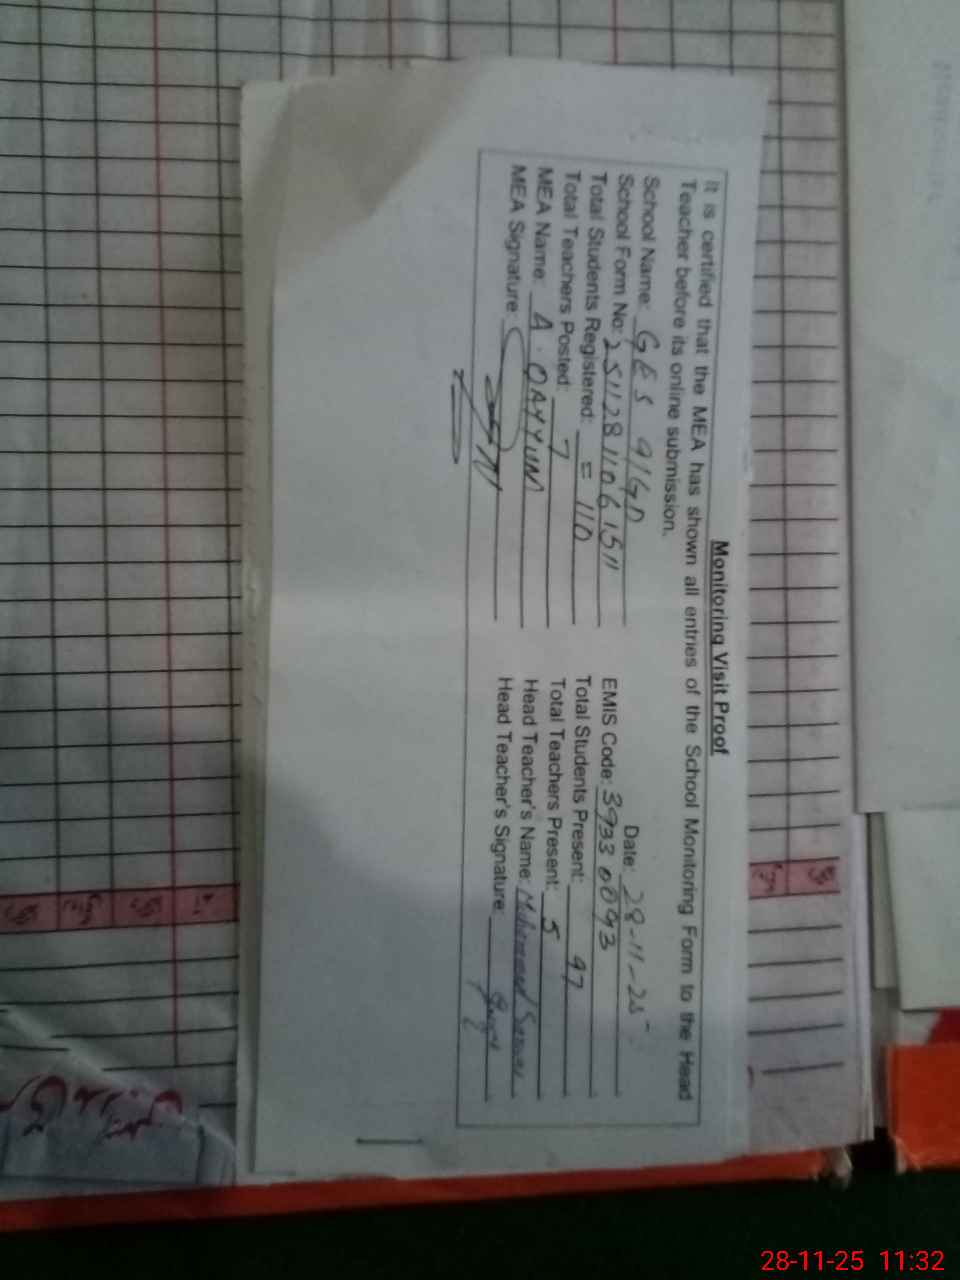 Monitoring Visit Proof
It is certified that the MEA has shown all entries of the School Monitoring Form to the Head
Teacher before its online submission.
Date: 28-11-25
School Name: GES 91GD
School Form No: 25112811061511 EMIS Code: 39330093
Total Students Registered: = 110 Total Students Present: 97
Total Teachers Posted: 7 Total Teachers Present: 5
MEA Name: A. QAYYUM Head Teacher's Name: Muhammad
MEA Signature: Head Teacher's Signature:
28-11-25 11:32